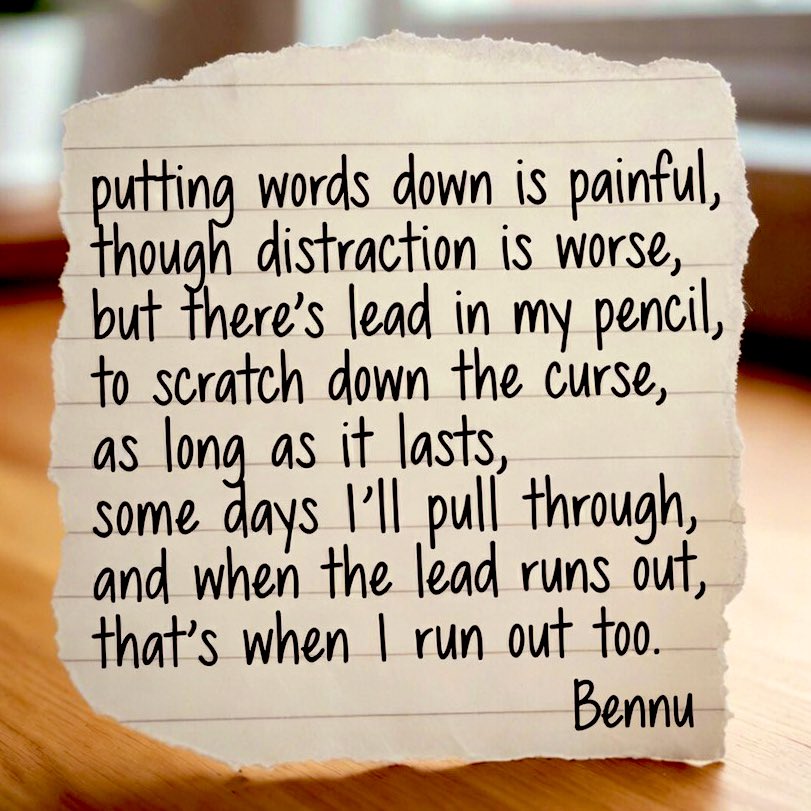 putting words down is painful,
though distraction is worse,
but there's lead in my pencil,
to scratch down the curse,
as long as it lasts,
some days I'll pull through,
and when the lead runs out,
that's when I run out too.
Bennu